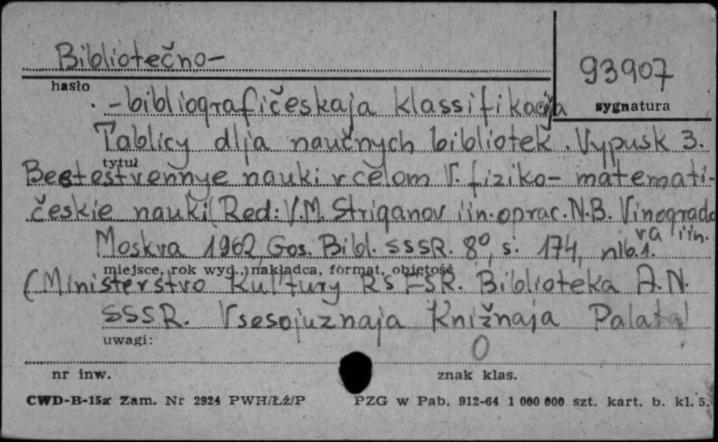 Bibliotečno-
93907
hasło
sygnatura
-bibliografičeskaja klassifikacija
Tablicy dlja naučnych bibliotek. Vypusk 3.
tytuł
Beestestvennye nauki v celom V. fiziko-matemati-
českie nauki (Red: V.M. Striganov i in. oprac. N.B. Vinogrado
va i in.
Moskva 1962, Gos. Bibl. SSSR. 8°, s. 174, nlb. 1.
miejsce, rok wyd., nakładca, format, objętość
(Ministerstvo Kul'tury RSFSR. Biblioteka A.N.
SSSR. Vsesojuznaja Knižnaja Palata)
uwagi:
0
nr inw.
znak klas.
CWD-B-15x Zam. Nr 2924 PWH/Łź/P PZG w Pab. 912-64 1 000 000 szt. kart. b. kl. 5.